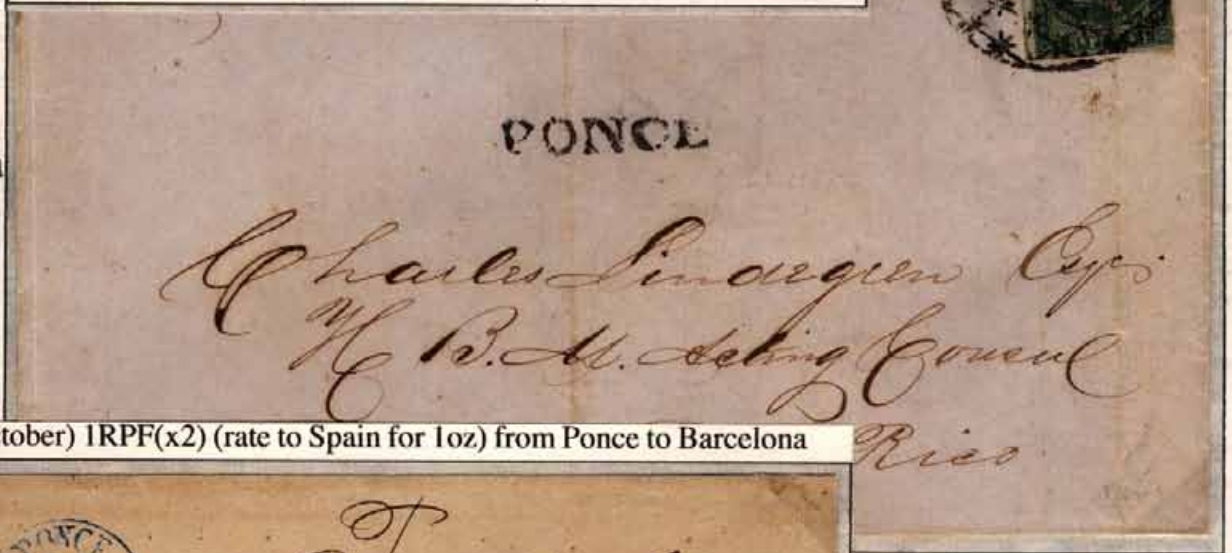 PONCE
Charles Lindegren Esqr.
H B. M. Acting Consul
Rico
tober) 1RPF(x2) (rate to Spain for 1oz) from Ponce to Barcelona
PONCE